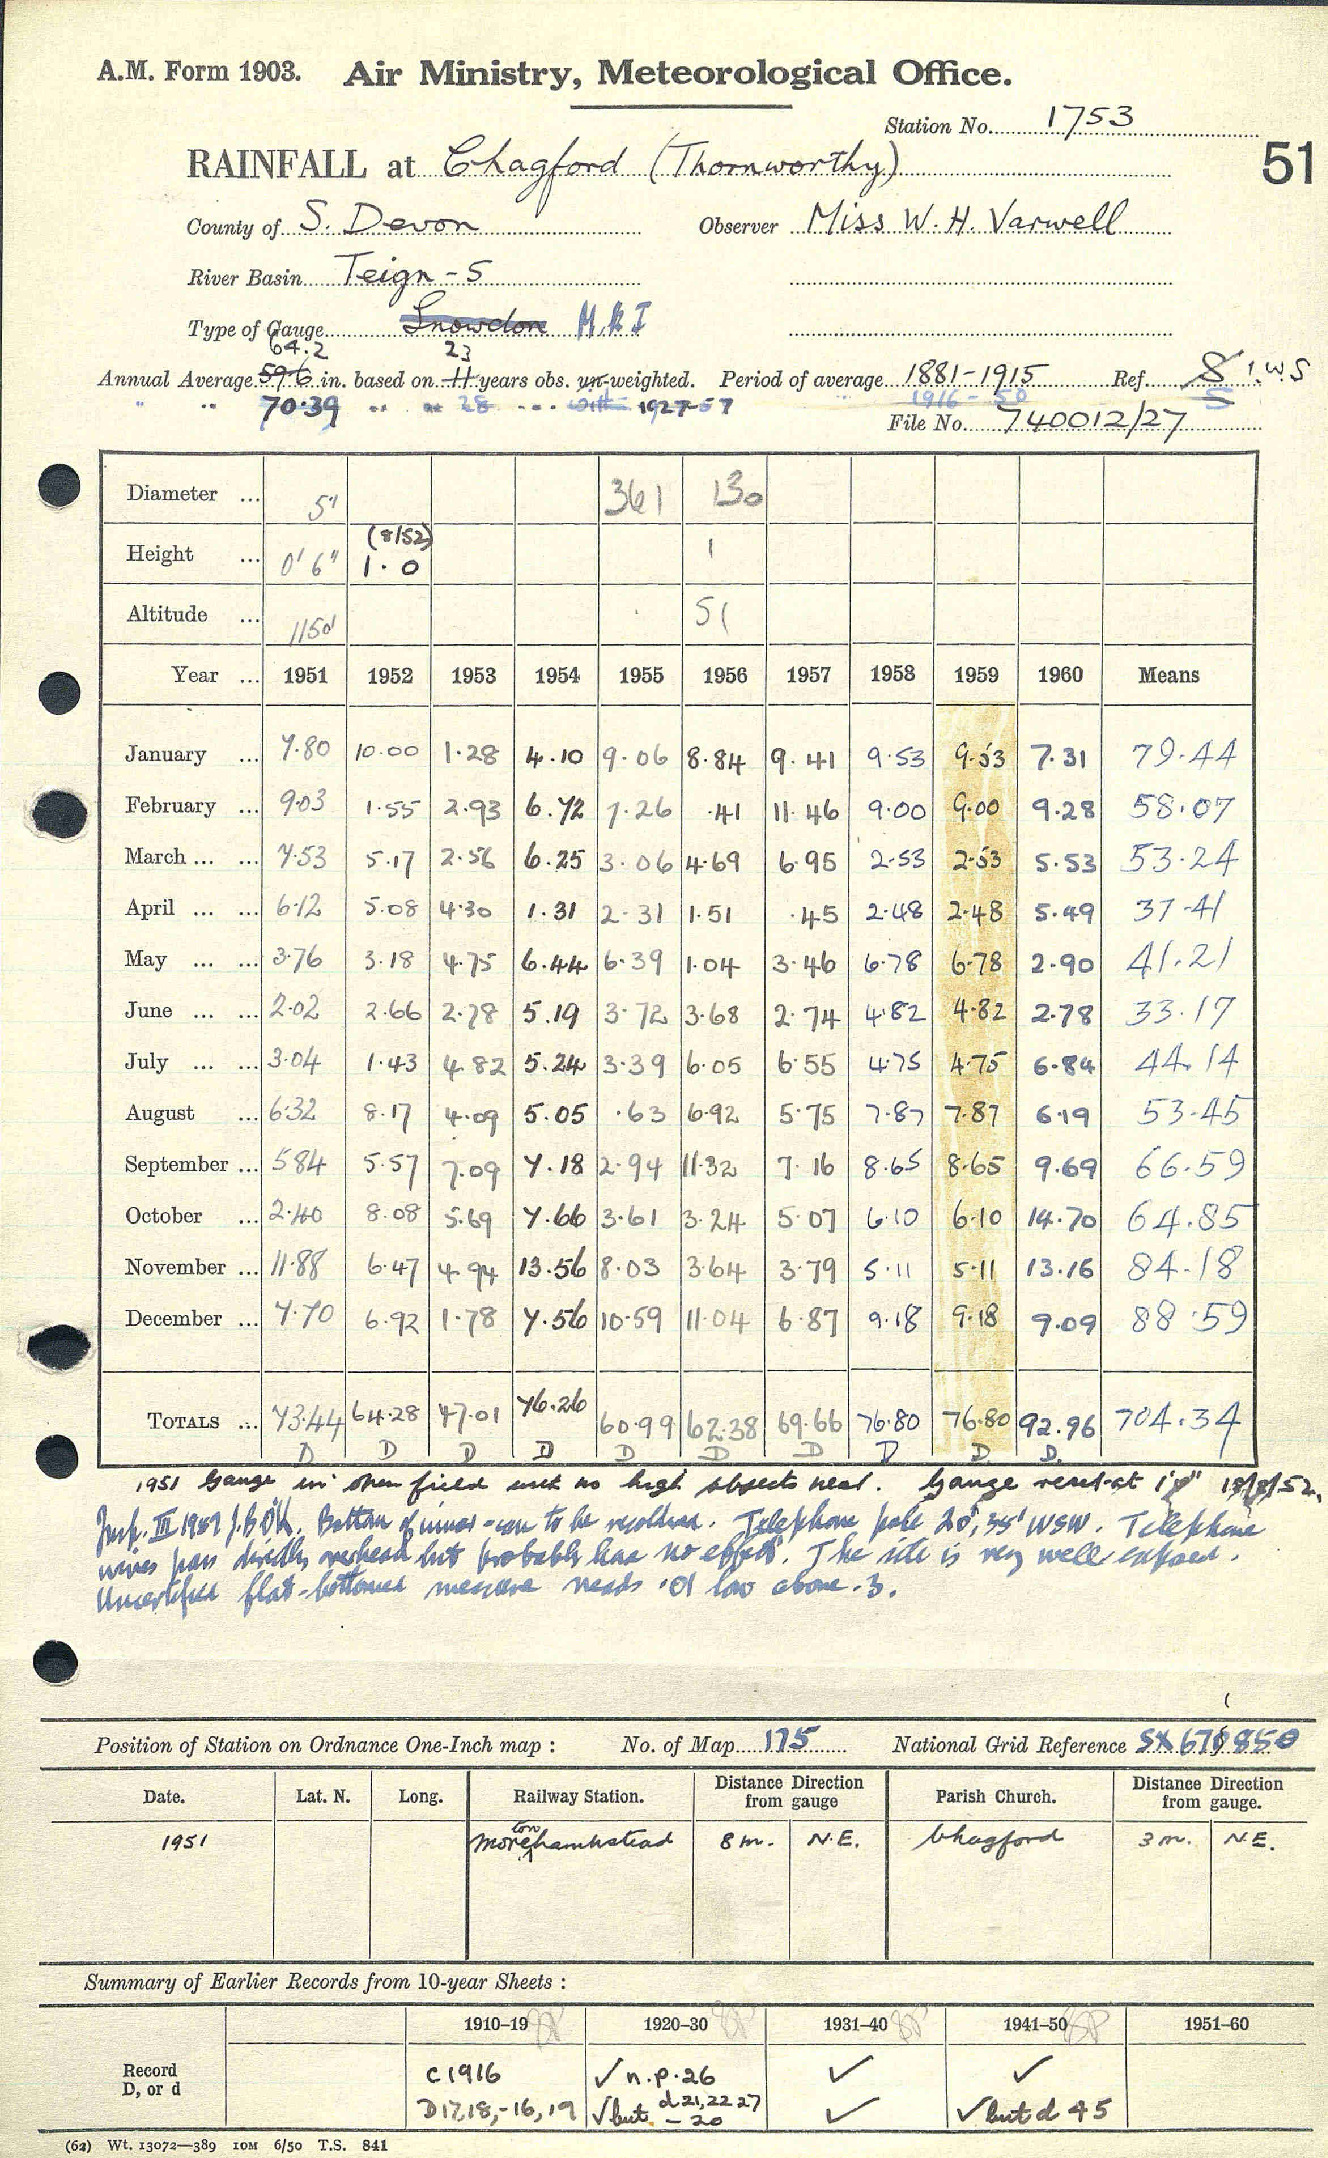 A.M. Form 1903. Air Ministry, Meteorological Office.
Station No. 1753
51
RAINFALL at Chagford (Thornworthy)
County of S. Devon Observer Miss W. H. Varwell
River Basin Teign - S
Type of Gauge Snowdon M.k I
64.2 23
Annual Average 59.6 in. based on 11 years obs. un-weighted. Period of average 1881-1915 Ref. 8 I.W.S
" " 70.39 " " 28 " with 1927-57 1916-50 S
File No. 740012/27
Diameter ... 5" 361 130
(8/52)
Height ... 0' 6" 1.0 1
Altitude ... 1150' 51
Year ... 1951 1952 1953 1954 1955 1956 1957 1958 1959 1960 Means
January ... 7.80 10.00 1.28 4.10 9.06 8.84 9.41 9.53 9.53 7.31 79.44
February ... 9.03 1.55 2.93 6.72 7.26 .41 11.46 9.00 9.00 9.28 58.07
March ... ... 7.53 5.17 2.56 6.25 3.06 4.69 6.95 2.53 2.53 5.53 53.24
April ... ... 6.12 5.08 4.30 1.31 2.31 1.51 .45 2.48 2.48 5.49 37.41
May ... ... 3.76 3.18 4.75 6.44 6.39 1.04 3.46 6.78 6.78 2.90 41.21
June ... ... 2.02 2.66 2.78 5.19 3.72 3.68 2.74 4.82 4.82 2.78 33.17
July ... ... 3.04 1.43 4.82 5.24 3.39 6.05 6.55 4.75 4.75 6.84 44.14
August ... 6.32 8.17 4.09 5.05 .63 6.92 5.75 7.87 7.87 6.19 53.45
September ... 5.84 5.57 7.09 7.18 2.94 11.32 7.16 8.65 8.65 9.69 66.59
October ... 2.40 8.08 5.69 7.66 3.61 3.24 5.07 6.10 6.10 14.70 64.85
November ... 11.88 6.47 4.94 13.56 8.03 3.64 3.79 5.11 5.11 13.16 84.18
December ... 7.70 6.92 1.78 7.56 10.59 11.04 6.87 9.18 9.18 9.09 88.59
TOTALS ... 73.44 64.28 47.01 76.26 60.99 62.38 69.66 76.80 76.80 92.96 704.34
D D D D D D D D D D.
1951 Gauge in open field with no high objects near. Gauge reset at 1'0" 18/8/52.
Insp. III 1957 J.B OK. Bottom of inner-can to be resoldered. Telephone pole 20', 35' WSW. Telephone
wires pass directly overhead but probably has no effect. The site is very well exposed.
Uncertified flat-bottomed measure reads .01 low above .3.
Position of Station on Ordnance One-Inch map : No. of Map 175 National Grid Reference SX 670850
1
Date. Lat. N. Long. Railway Station. Distance from gauge Direction Parish Church. Distance from gauge. Direction
1951 Moretonhampstead 8 m. N.E. Chagford 3 m. N.E.
Summary of Earlier Records from 10-year Sheets :
1910-19 1920-30 1931-40 1941-50 1951-60
Record c 1916 ✓ n.p. 26 ✓ ✓
D, or d D 17, 18, - 16, 19 ✓ but d 21, 22 27 - 20 ✓ ✓ but d 45
(62) Wt. 13072—389 10M 6/50 T.S. 841